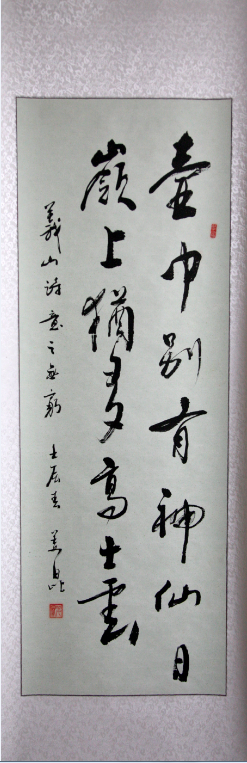 壶中别有神仙日
嶺上猶多高士雲
義山詩意之
壬辰春